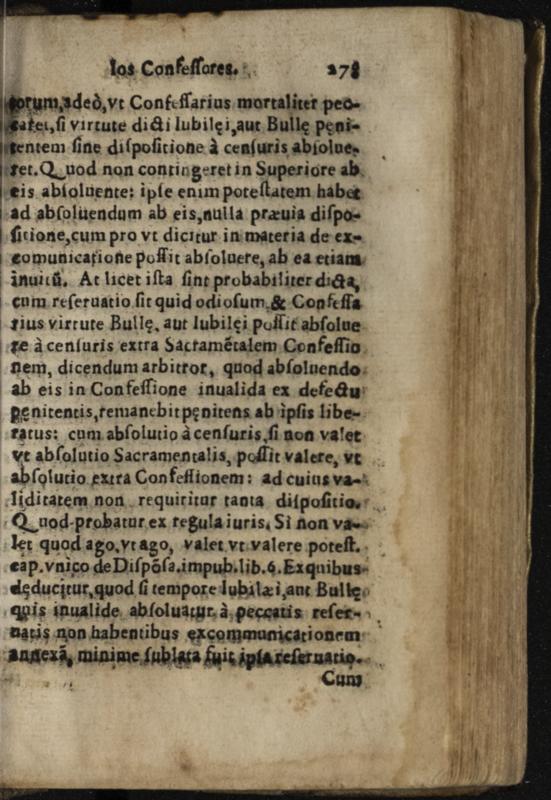 los Confeſſores. 278
torum, adeò, vt Confeſſarius mortaliter pec-
caret, ſi virtute dicti Iubilęi, aut Bullę pęni-
tentem ſine diſpoſitione à cenſuris abſolue-
ret. Quod non contingeret in Superiore ab
eis abſoluente: ipſe enim poteſtatem habet
ad abſoluendum ab eis, nulla præuia diſpo-
ſitione, cum pro vt dicitur in materia de ex-
comunicatione poſſit abſoluere, ab ea etiam
inuitū. At licet iſta ſint probabiliter dicta,
cum reſeruatio ſit quid odioſum & Confeſſa
rius virtute Bullę, aut Iubilęi poſſit abſolue
re à cenſuris extra Sacramētalem Confeſſio
nem, dicendum arbitror, quod abſoluendo
ab eis in Confeſſione inualida ex defectu
pęnitentis, remanebit pęnitens ab ipſis libe-
ratus: cum abſolutio à cenſuris, ſi non valet
vt abſolutio Sacramentalis, poſſit valere, vt
abſolutio extra Confeſſionem: ad cuius va-
liditatem non requiritur tanta diſpoſitio.
Quod probatur ex regula iuris. Si non va-
let quod ago, vt ago, valet vt valere poteſt.
cap. vnico de Diſpōſa. impub. lib. 6. Ex quibus
dęducitur, quod ſi tempore Iubilæi, aut Bullę
quis inualide abſoluatur à peccatis reſer-
uatis non habentibus excommunicationem
annexā, minime ſublata fuit ipſa reſeruatio.
Cum